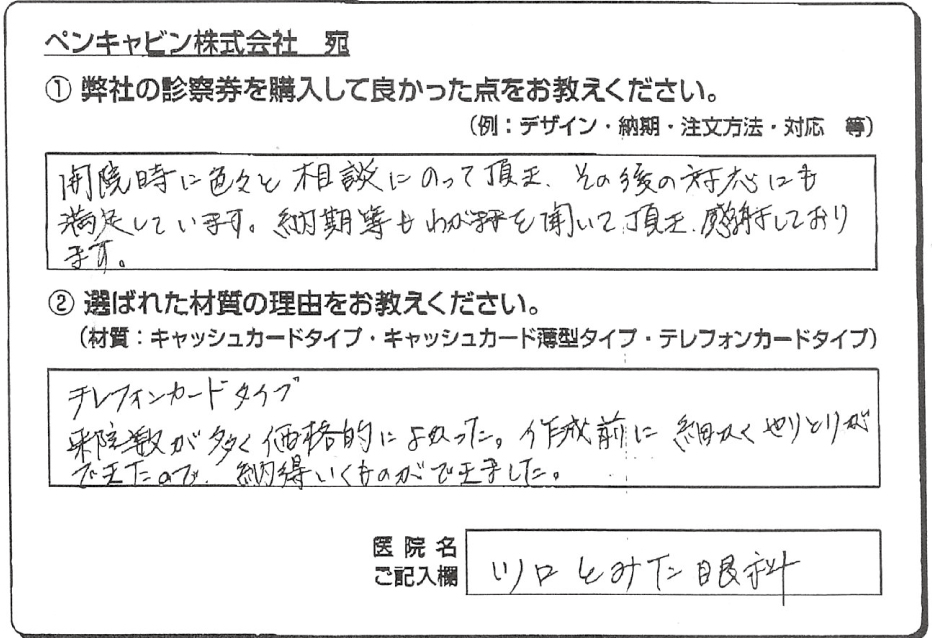 ペンキャビン株式会社　宛
① 弊社の診察券を購入して良かった点をお教えください。
（例：デザイン・納期・注文方法・対応　等）
開院時に色々と相談にのって頂き、その後の対応にも
満足しています。納期等もわがままを聞いて頂き、感謝しており
ます。
② 選ばれた材質の理由をお教えください。
（材質：キャッシュカードタイプ・キャッシュカード薄型タイプ・テレフォンカードタイプ）
テレフォンカードタイプ
来院数が多く価格的によかった。作成前に細かくやりとりが
できたので、納得いくものができました。
医院名
ご記入欄
川口とみた眼科